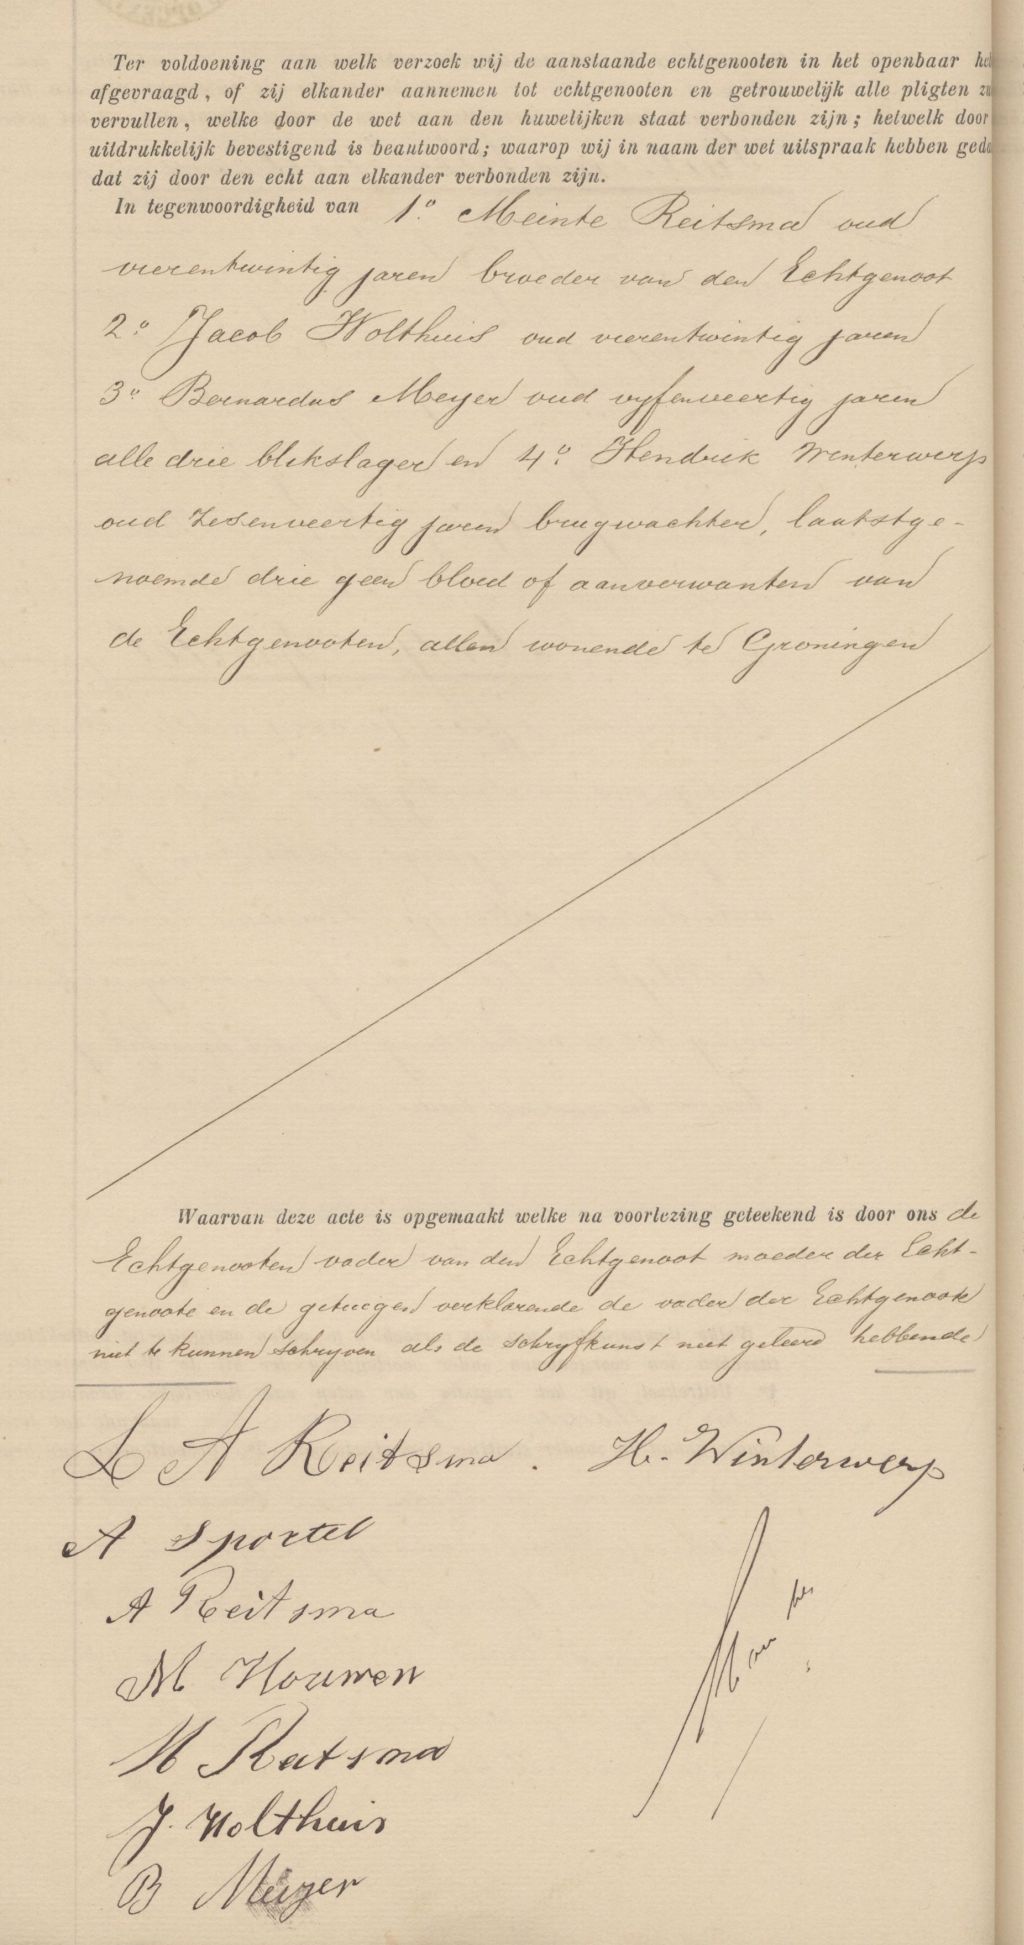 Ter voldoening aan welk verzoek wij de aanstaande echtgenooten in het openbaar heb
afgevraagd, of zij elkander aannemen tot echtgenooten en getrouwelijk alle pligten zu
vervullen, welke door de wet aan den huwelijken staat verbonden zijn; hetwelk door
uitdrukkelijk bevestigend is beantwoord; waarop wij in naam der wet uitspraak hebben geda
dat zij door den echt aan elkander verbonden zijn.
In tegenwoordigheid van 1o Meinte Reitsma oud
vierentwintig jaren broeder van den Echtgenoot
2o Jacob Holthuis oud vierentwintig jaren
3o Bernardus Meyer oud vyfenveertig jaren
alle drie blikslager en 4o Hendrik Winterwerp
oud zesenveertig jaren brugwachter, laatstge-
noemde drie geen bloed of aanverwanten van
de Echtgenooten, allen wonende te Groningen
Waarvan deze acte is opgemaakt welke na voorlezing geteekend is door ons de
Echtgenooten vader van den Echtgenoot moeder der Echt-
genoote en de getuigen verklarende de vader der Echtgenoote
niet te kunnen schryven als de schryfkunst niet geleerd hebbende
L A Reitsma. H. Winterwerp
A Sportel
A Reitsma
M Houwen
M Reitsma
J. Holthuis
B Meijer